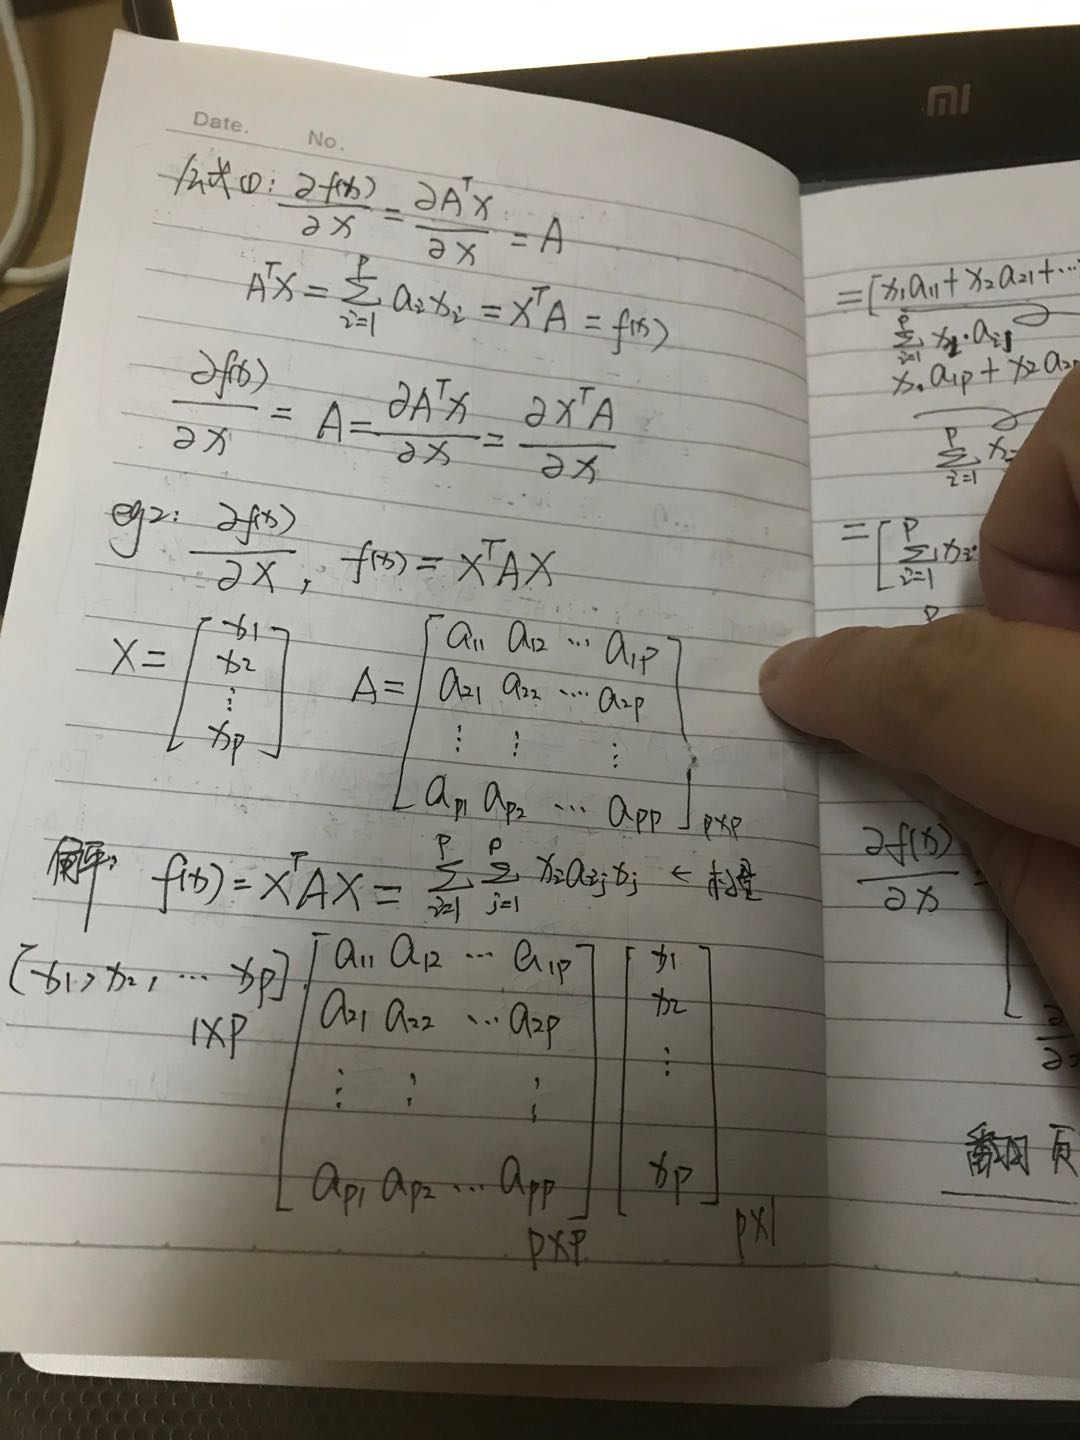 mi
Date. No.
公式①: ∂f(x)/∂X = ∂AᵀX/∂X = A
AᵀX = Σᵢ₌₁ᵖ aᵢxᵢ = XᵀA = f(x)
∂f(x)/∂X = A = ∂AᵀX/∂X = ∂XᵀA/∂X
eg2: ∂f(x)/∂X, f(x) = XᵀAX
X = [x1 x2 ⋮ xp] A = [a11 a12 ⋯ a1p
a21 a22 ⋯ a2p
⋮ ⋮ ⋮
ap1 ap2 ⋯ app] p×p
解: f(x) = XᵀAX = Σᵢ₌₁ᵖ Σⱼ₌₁ᵖ xᵢaᵢⱼxⱼ ← 标量
[x1, x2, ⋯ xp]· [a11 a12 ⋯ a1p] [x1
1×p a21 a22 ⋯ a2p x2
⋮ ⋮ ⋮ ⋮
ap1 ap2 ⋯ app] xp]
p×p p×1
= [x1a11 + x2a21 + ⋯
Σᵢ₌₁ᵖ xᵢ·aᵢ₁
x1a1p + x2a2p
Σᵢ₌₁ᵖ xᵢ
= [Σᵢ₌₁ᵖ xᵢ·
∂f(x)/∂X =
翻页